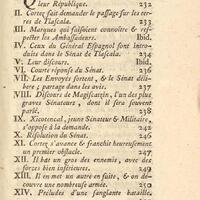 leur République. 232
II. Cortez fait demander le passage sur les ter-
res de Tlascala. 233
III. Marques qui faisoient connoître & ref-
pecter les Ambassadeurs. Ibid.
IV. Ceux du Général Espagnol sont intro-
duits dans le Sénat de Tlascala. 234
V. Leur discours. Ibid.
VI. Courte réponse du Sénat. 236
VII. Les Envoyés sortent, & le Sénat déli-
bere ; partage dans les avis. 237
VIII. Discours de Magiscatzin, l'un des plus
graves Sénateurs, dont il sera souvent
parlé. 238
IX. Xicotencal, jeune Sénateur & Militaire,
s'oppose à la demande. 240
X. Résolution du Sénat. 245
XI. Cortez s'avance & franchit heureusement
un premier obstacle. 247
XII. Il bat un gros des ennemis, avec des
forces bien inférieures. 249
XIII. Il en met un autre en fuite, & on dé-
couvre une nombreuse armée. 250
XIV. Préludes d'une sanglante bataille.